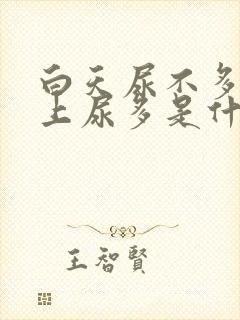 白天尿不多
上尿多是什
王智賢